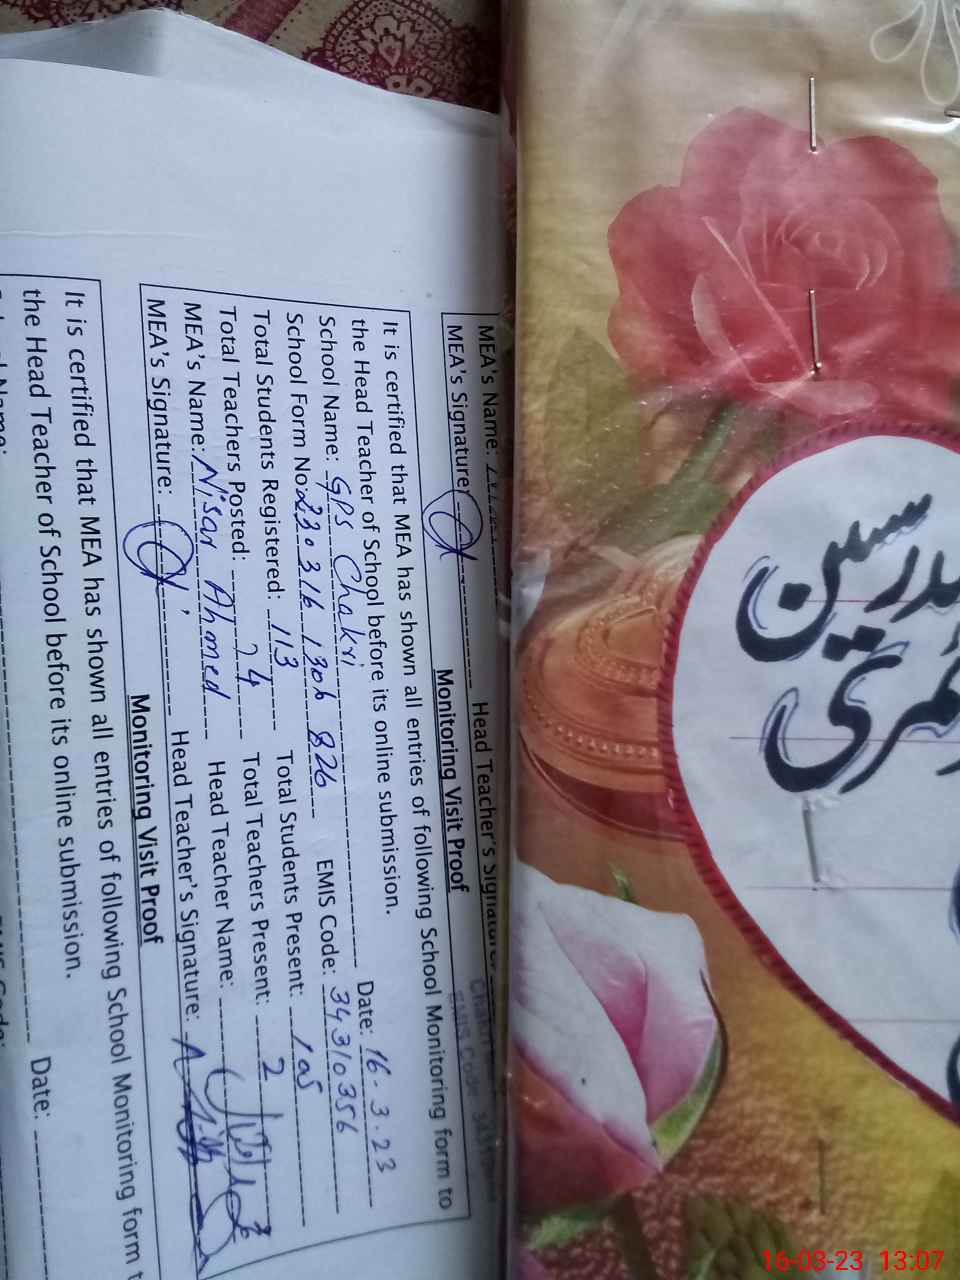 MEA's Name:
MEA's Signature: Head Teacher's Signature:
EMIS Code
Monitoring Visit Proof
It is certified that MEA has shown all entries of following School Monitoring form to
the Head Teacher of School before its online submission.
School Name: GPS Chakri Date: 16.3.23
School Form No: 230316 1306 826 EMIS Code: 34310356
Total Students Registered: 113 Total Students Present: 105
Total Teachers Posted: 24 Total Teachers Present: 2
MEA's Name: Nisar Ahmed Head Teacher Name:
MEA's Signature: Head Teacher's Signature:
Monitoring Visit Proof
It is certified that MEA has shown all entries of following School Monitoring form t
the Head Teacher of School before its online submission.
Date:
مدرسین
16-03-23 13:07